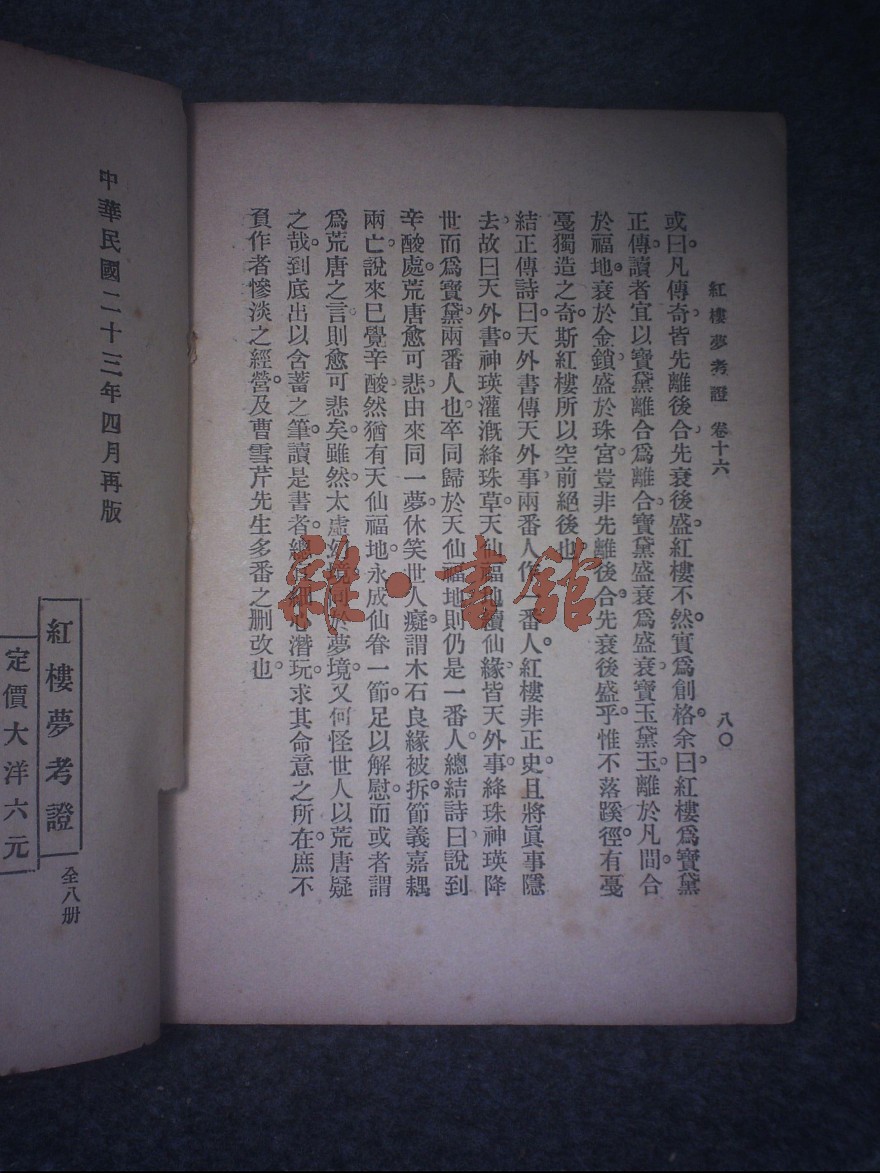 紅樓夢考證 卷十六 八〇
或曰。凡傳奇皆先離後合。先衰後盛。紅樓不然。實爲創格。余曰。紅樓爲寶黛
正傳。讀者宜以寶黛離合爲離合。寶黛盛衰爲盛衰。寶玉黛玉。離於凡間。合
於福地。衰於金鎖。盛於珠宮。豈非先離後合。先衰後盛乎。惟不落蹊徑。有戛
戛獨造之奇。斯紅樓所以空前絕後也。
結正傳詩曰。天外書傳天外事。兩番人作一番人。紅樓非正史。且將眞事隱
去。故曰天外書。神瑛灌漑絳珠草。天仙福地續仙緣。皆天外事。絳珠神瑛降
世而爲寶黛。兩番人也。卒同歸於天仙福地。則仍是一番人。總結詩曰。說到
辛酸處。荒唐愈可悲。由來同一夢。休笑世人癡。謂木石良緣被拆。節義嘉耦
兩亡。說來已覺辛酸。然猶有天仙福地永成仙眷一節。足以解慰。而或者謂
爲荒唐之言。則愈可悲矣。雖然。太虛幻境。同於夢境。又何怪世人以荒唐疑
之哉。到底出以含蓄之筆。讀是書者。總宜細心潛玩。求其命意之所在。庶不
負作者慘淡之經營。及曹雪芹先生多番之刪改也。
中華民國二十三年四月再版
紅樓夢考證 全八册
定價大洋六元
雜·書館